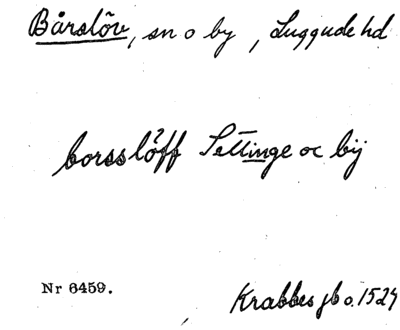 Bårslöv, sn o by, Luggude hd
borsslöff Settinge oc bij
Nr 6459.
Krabbes jb o. 1524